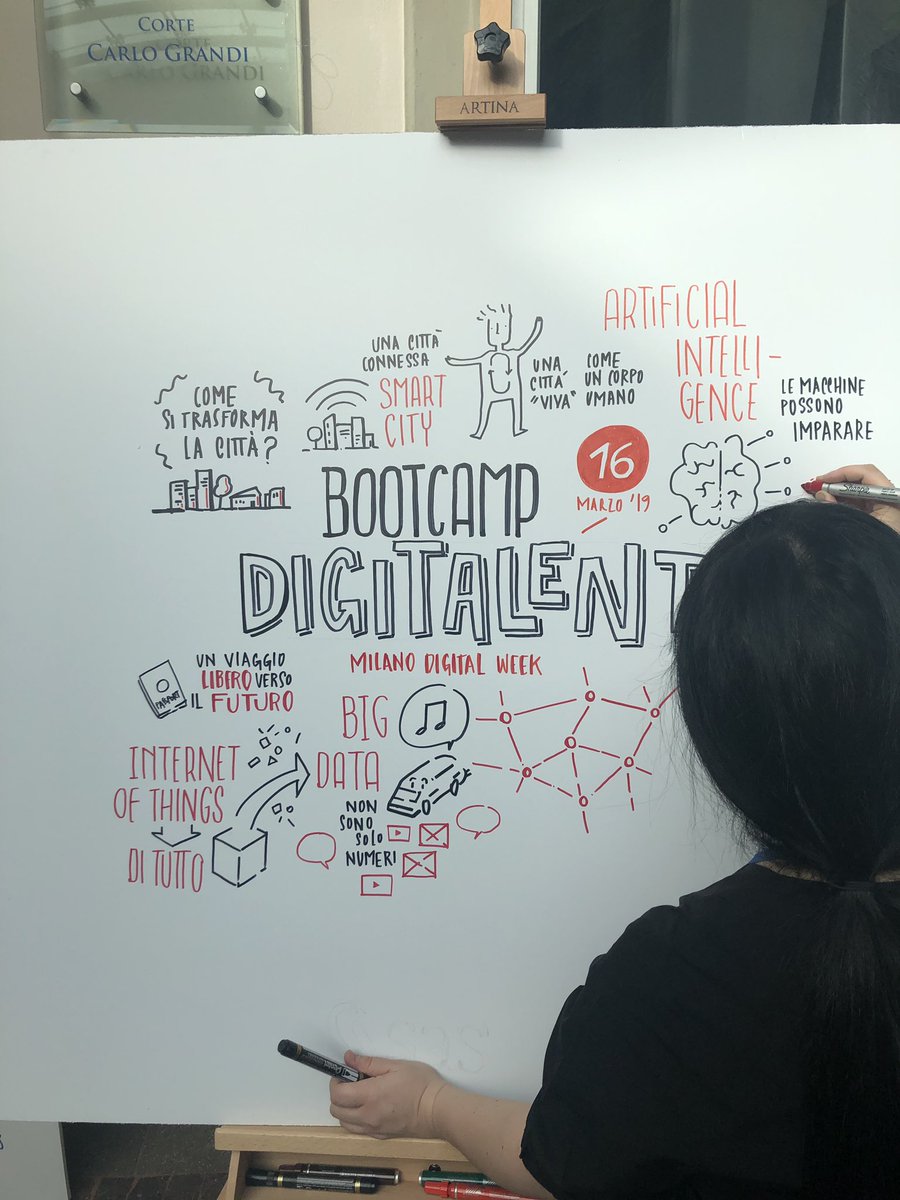 CORTE
CARLO GRANDI
ARTINA
COME
SI TRASFORMA
LA CITTÀ?
UNA CITTÀ
CONNESSA
SMART
CITY
UNA
CITTÀ
"VIVA"
COME
UN CORPO
UMANO
ARTIFICIAL
INTELLI-
GENCE
LE MACCHINE
POSSONO
IMPARARE
16
MARZO '19
BOOTCAMP
DIGITALENT
MILANO DIGITAL WEEK
UN VIAGGIO
LIBERO VERSO
IL FUTURO
PASSPORT
INTERNET
OF THINGS
DI TUTTO
BIG
DATA
NON
SONO
SOLO
NUMERI
Sharpie